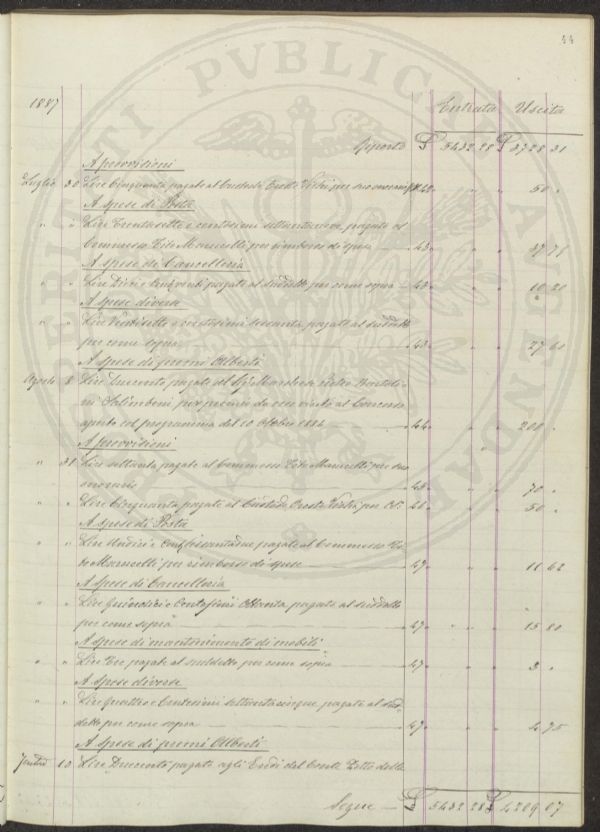 44
1887 Entrata Uscita
Riporto £ 5432 28 £ 3728 31
A provvisioni
Luglio 30 Lire Cinquanta pagate al Custode Oreste per suo onorario 42 " " " 50 "
A Spese di Posta
" " Lire Trentasette e centesimi settantacinque pagate al
Commesso Tito Marucelli per rimborso di spese 43 " " " 37 75
A Spese di Cancelleria
" " Lire Dieci e Cent. venti pagate al suddetto per come sopra 43 " " " 10 20
A Spese diverse
" " Lire Ventisette e centesimi sessanta pagate al suddetto
per come sopra 43 " " " 27 60
A Spese di premi Alberti
Agosto 8 Lire Duecento pagate al Sig. Marchese Pietro Bartoli
ni Salimbeni per premio da esso vinto al Concorso
aperto col programma del 10 Ottobre 1884 44 " " " 200 "
A provvisioni
" 31 Lire settanta pagate al Commesso Tito Marucelli per suo
onorario " " " 70 "
" " Lire Cinquanta pagate al Custode Oreste per Cs. 46 " " " 50 "
A Spese di Posta
" " Lire Undici e Cent. sessantadue pagate al Commesso Ti
to Marucelli per rimborso di spese 47 " " " 11 62
A Spese di Cancelleria
" " Lire Quindici e Centesimi Ottanta pagate al suddetto
per come sopra 47 " " " 15 80
A Spese di mantenimento di mobili
" " Lire Tre pagate al suddetto per come sopra 47 " " " 3 "
A Spese diverse
" " Lire Quattro e Centesimi settantacinque pagate al sud
detto per come sopra 47 " " " 4 75
A Spese di premi Alberti
10 Lire Duecento pagate agli Eredi del Conte Pitti della
Segue £ 5432 28 £ 4209 07